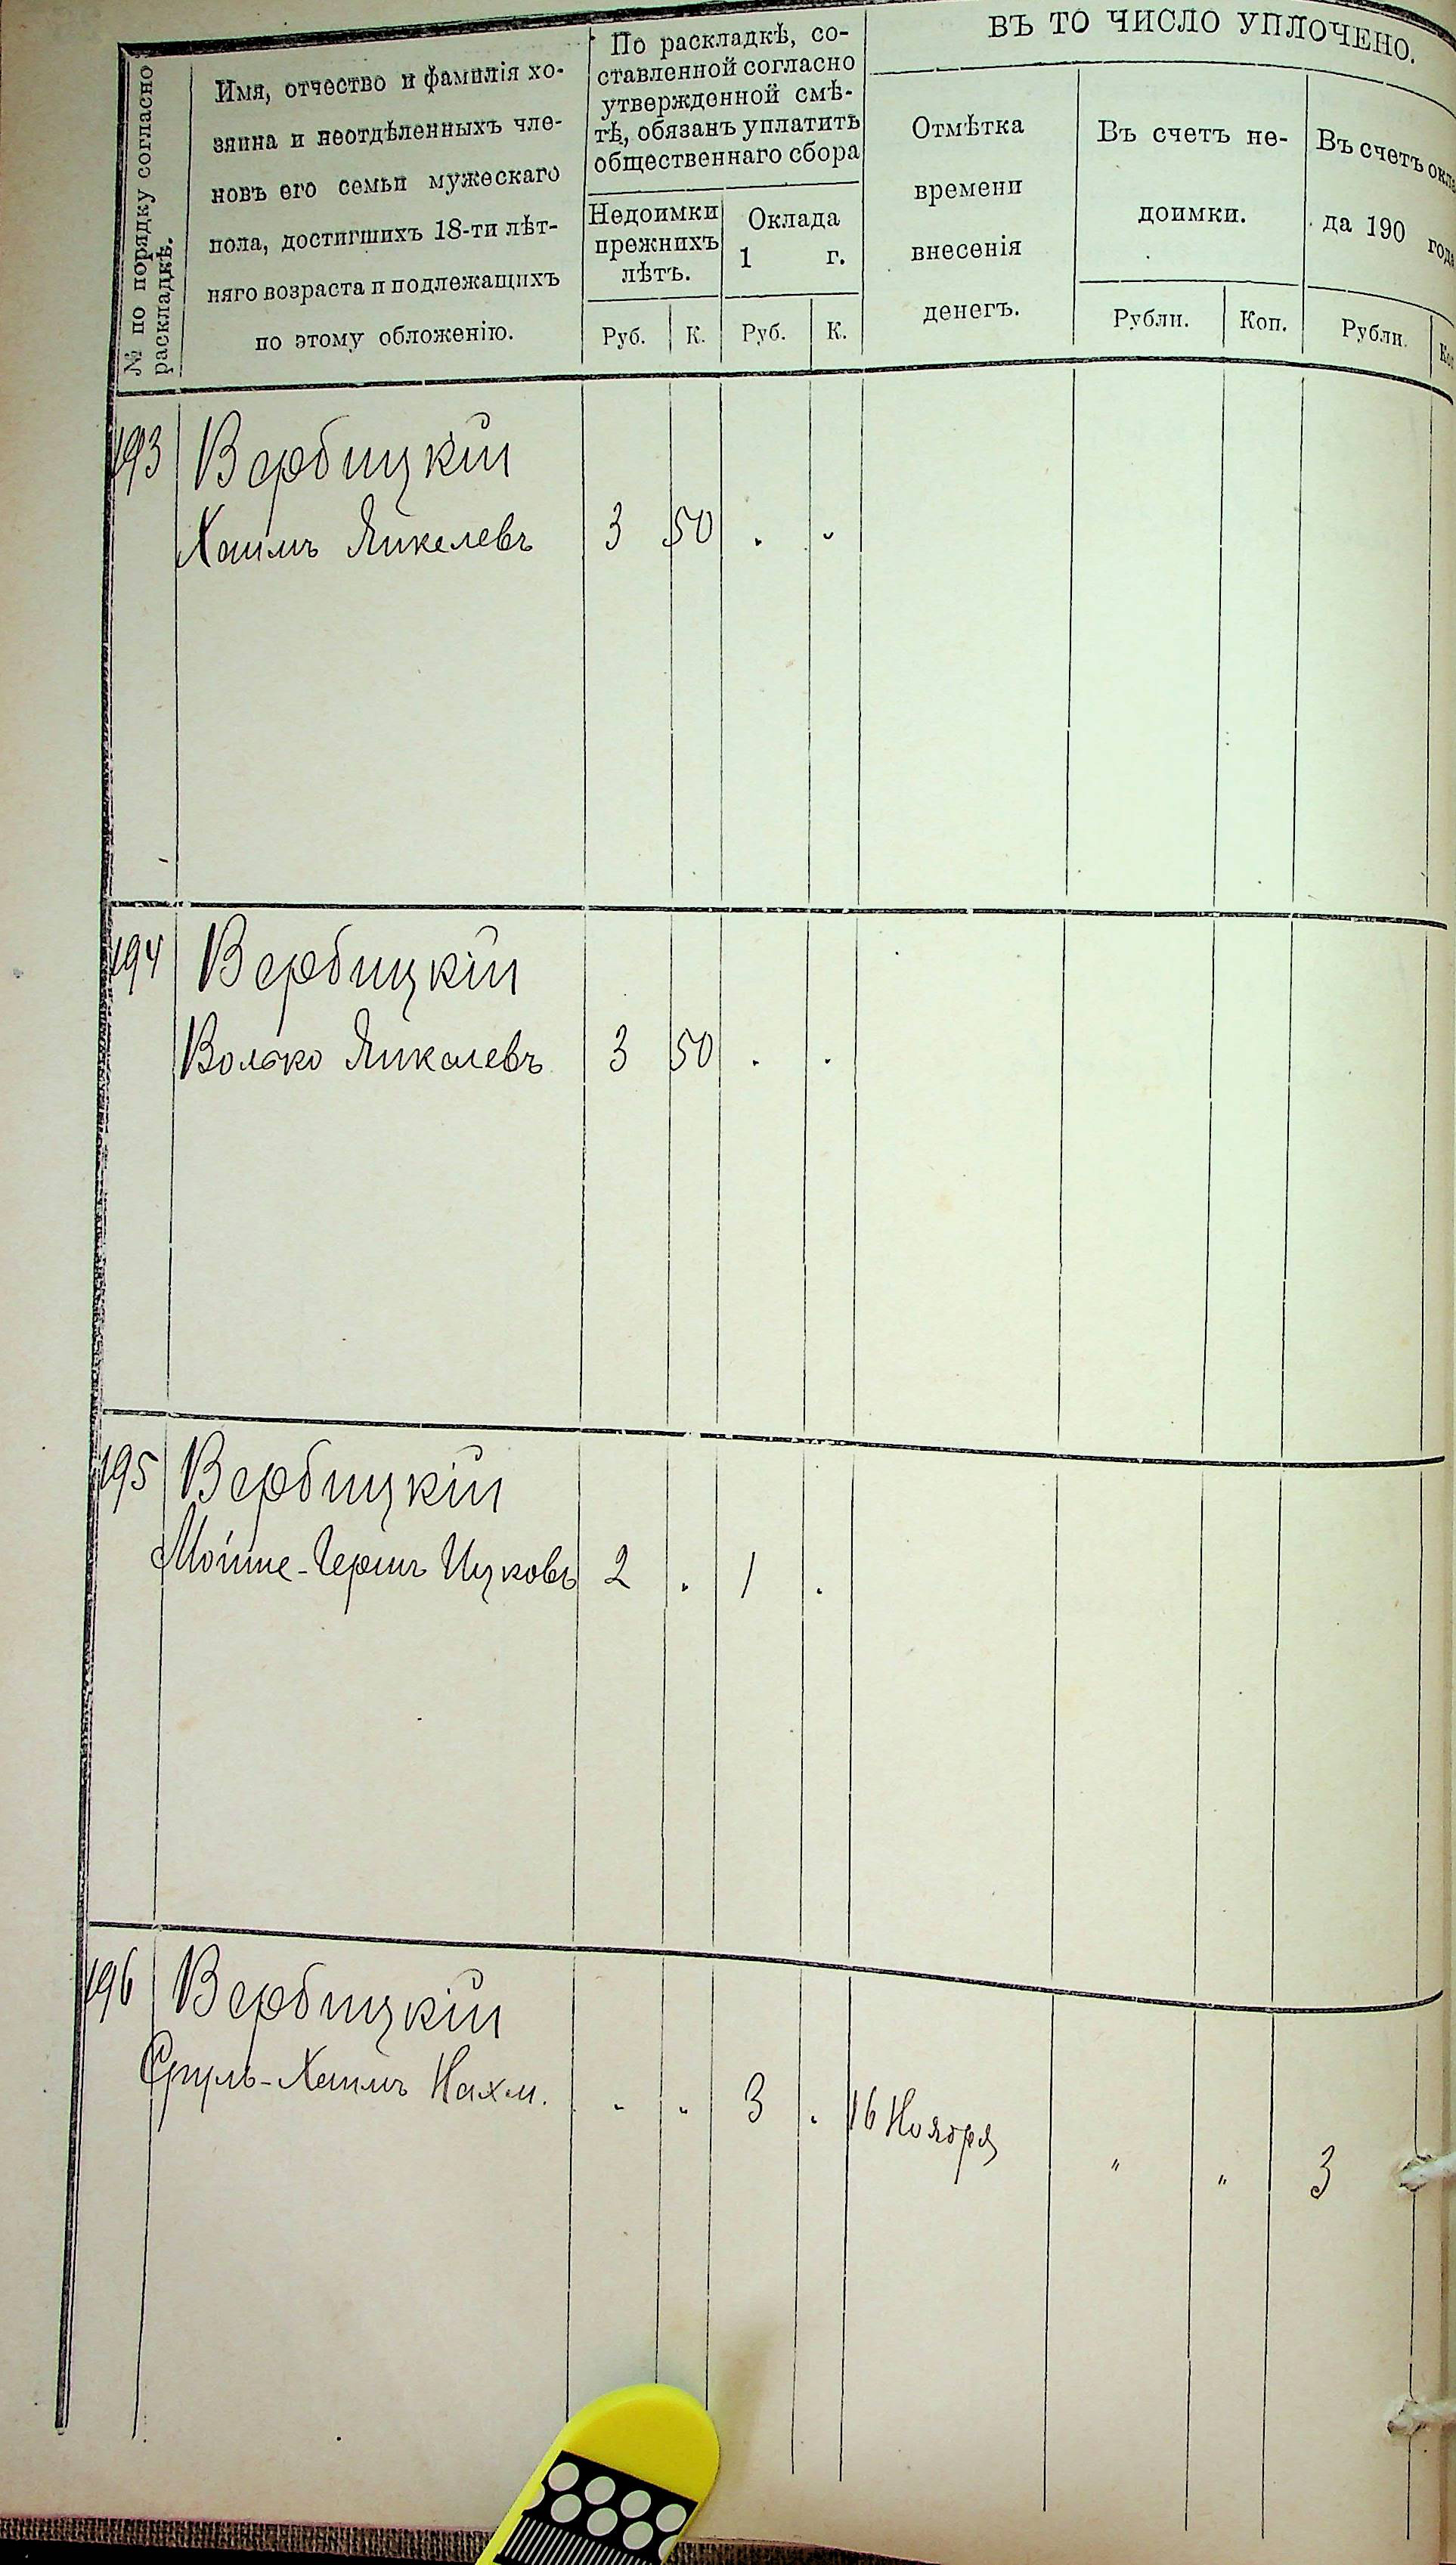 № по порядку согласно
раскладкѣ.
Имя, отчество и фамилія хо-
зяина и неотдѣленныхъ чле-
новъ его семьи мужескаго
пола, достигшихъ 18-ти лѣт-
няго возраста и подлежащихъ
по этому обложенію.
По раскладкѣ, со-
ставленной согласно
утвержденной смѣ-
тѣ, обязанъ уплатить
общественнаго сбора
Недоимки
прежнихъ
лѣтъ.
Оклада
1 г.
Руб. К. Руб. К.
ВЪ ТО ЧИСЛО УПЛОЧЕНО.
Отмѣтка
времени
внесенія
денегъ.
Въ счетъ не-
доимки.
Рубли. Коп.
Въ счетъ окла
да 190 года
Рубли. Коп
193 Вербицкій
Хаимъ Янкелевъ 3 50 . .
194 Вербицкій
Волько Янкелевъ 3 50 . .
195 Вербицкій
Мойше-Гершъ Ицковъ 2 . 1 .
196 Вербицкій
Сруль-Хаимъ Нахм. „ „ 3 . 16 Ноября „ „ 3